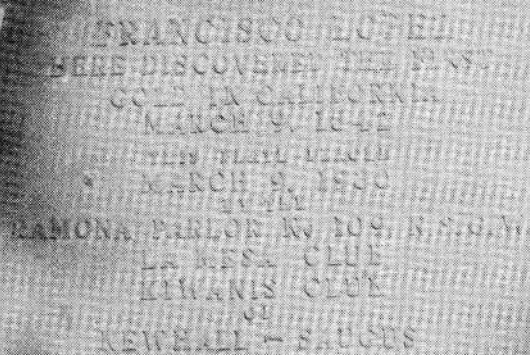 FRANCISCO LOPEZ
HERE DISCOVERED THE FIRST
GOLD IN CALIFORNIA
MARCH 9, 1842
MARCH 9, 1930
BY THE
RAMONA PARLOR No 109, N.S.G.W.
LA MESA CLUB
KIWANIS CLUB
OF
NEWHALL - SAUGUS